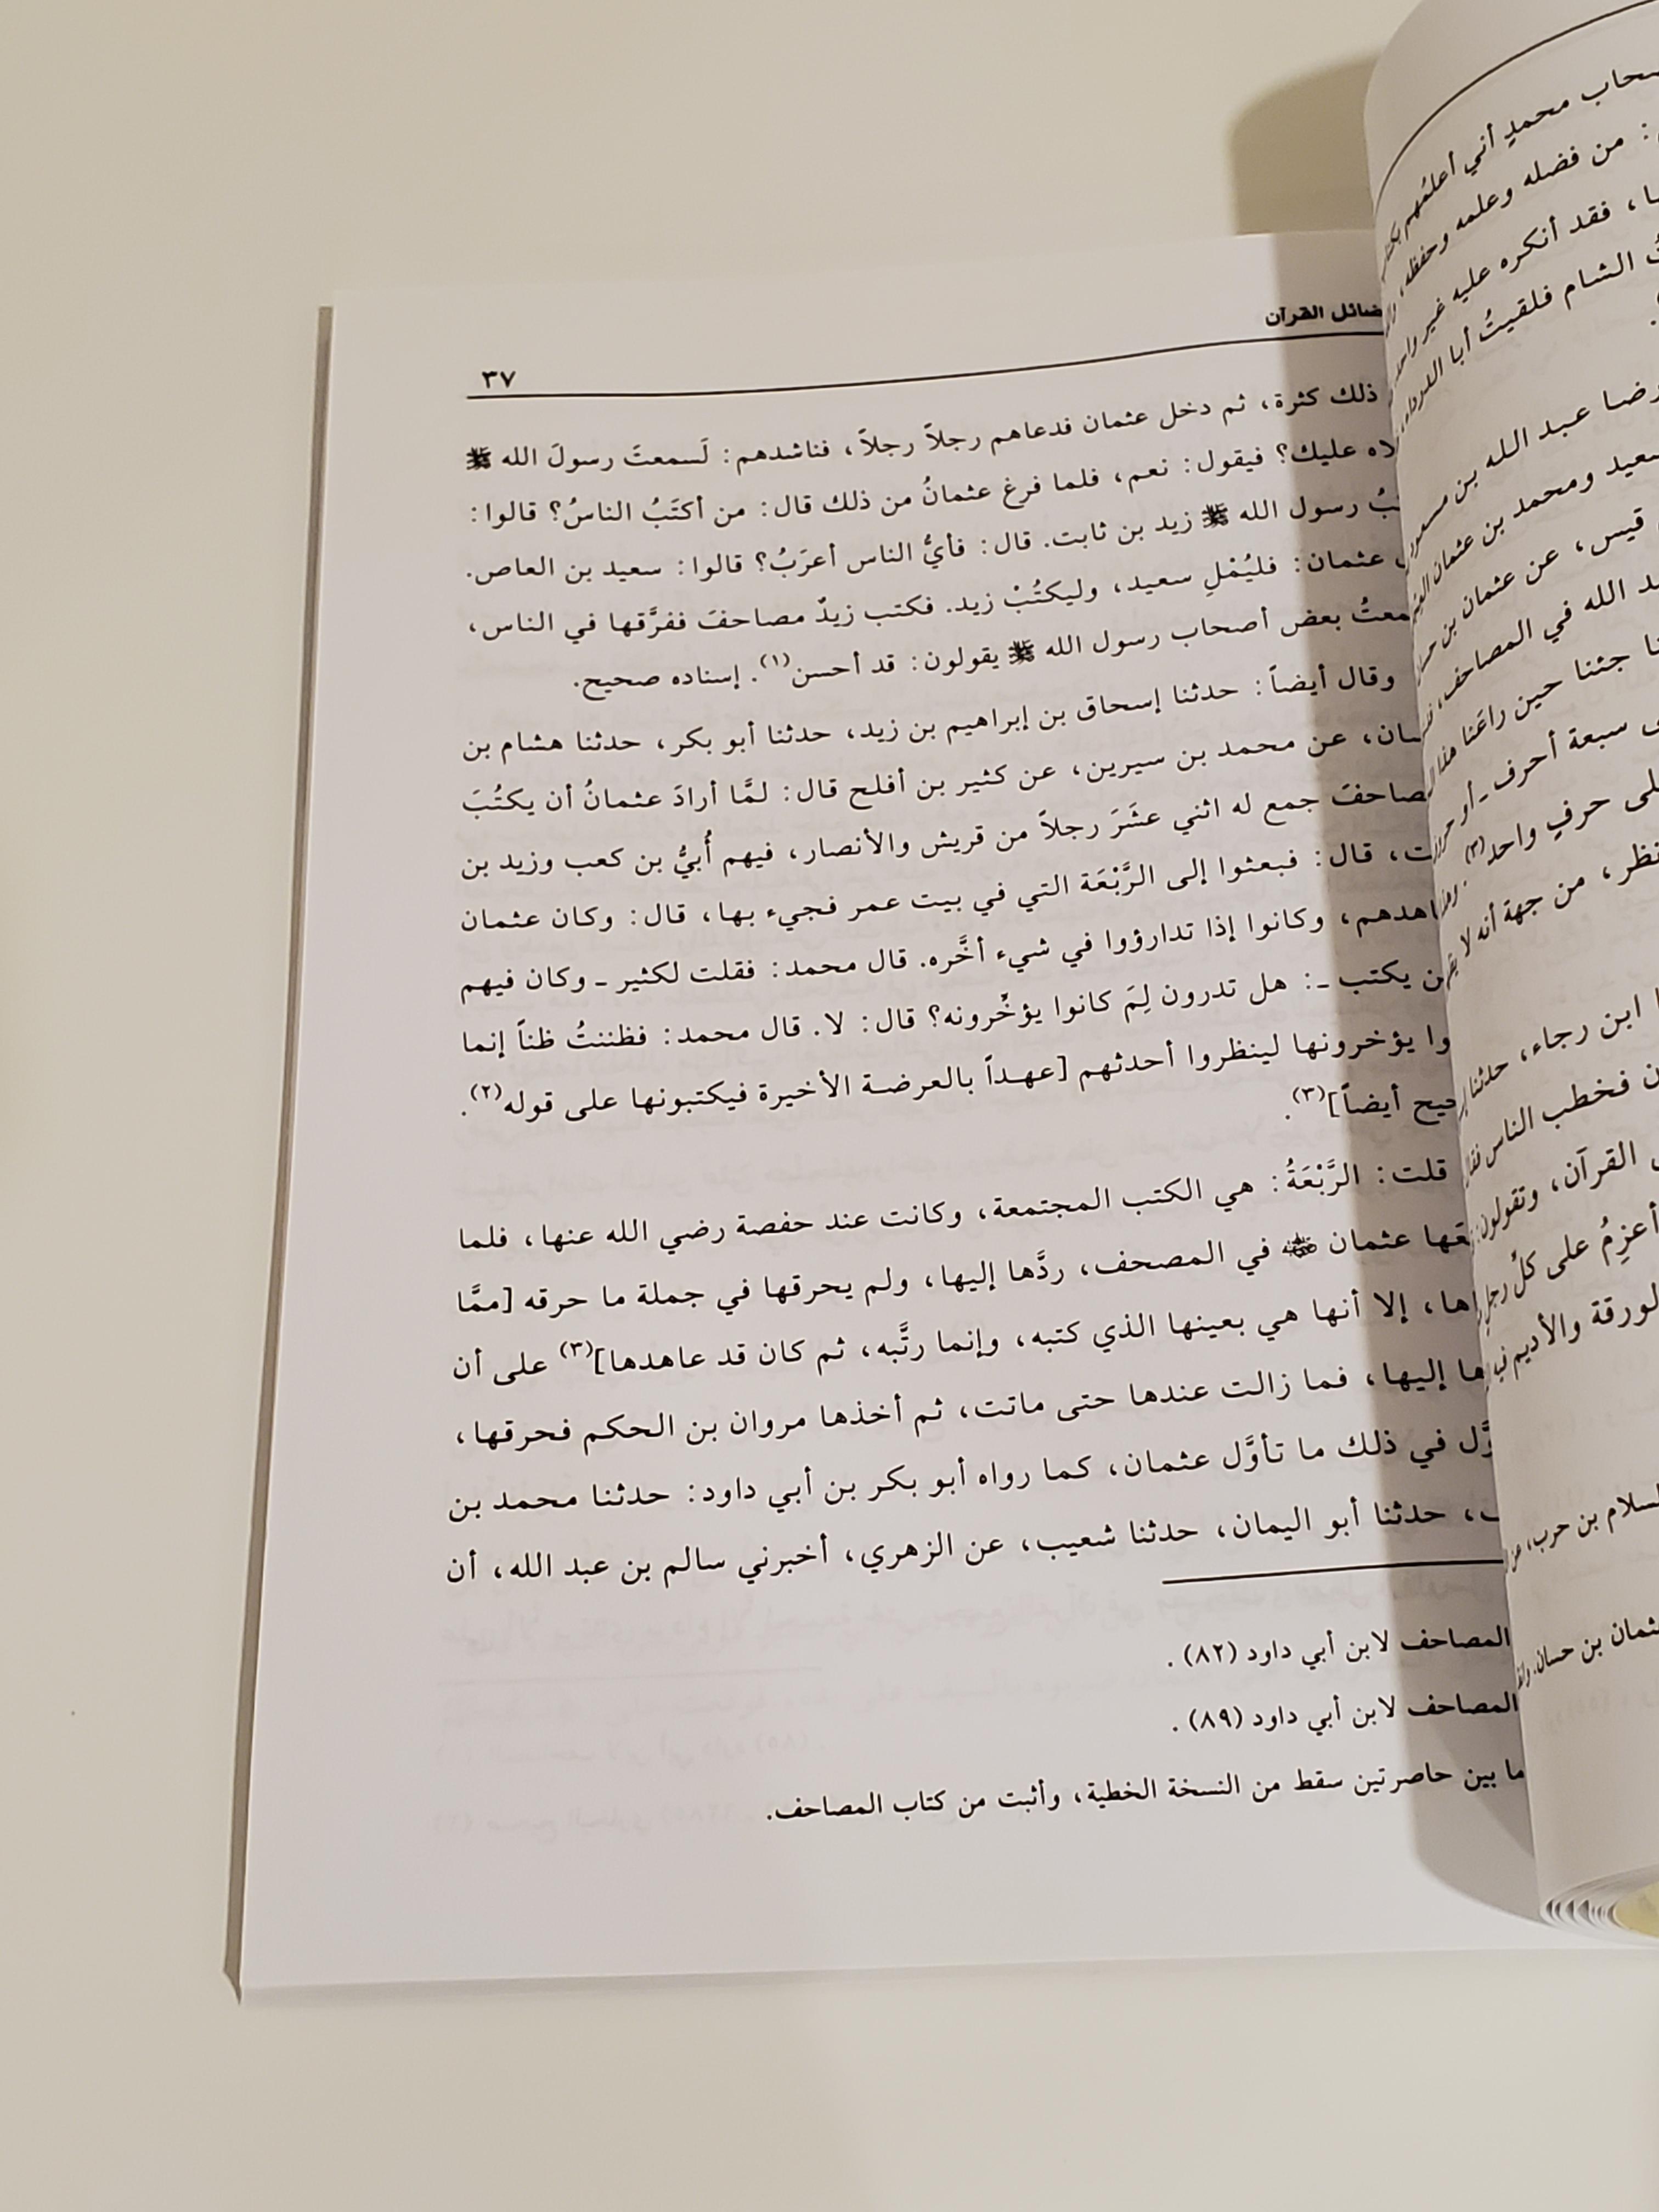 القرآن
٣٧
ذلك كثرة، ثم دخل عثمان فدعاهم رجلاً رجلاً، فناشدهم: لَسمعتَ رسولَ الله ﷺ
عليك؟ فيقول: نعم، فلما فرغ عثمانُ من ذلك قال: من أكتَبُ الناسُ؟ قالوا:
رسول الله ﷺ زيد بن ثابت. قال: فأيُّ الناس أعرَبُ؟ قالوا: سعيد بن العاص.
عثمان: فليُمْلِ سعيد، وليكتُبْ زيد. فكتب زيدٌ مصاحفَ ففرَّقها في الناس،
بعض أصحاب رسول الله ﷺ يقولون: قد أحسن(١). إسناده صحيح.
وقال أيضاً: حدثنا إسحاق بن إبراهيم بن زيد، حدثنا أبو بكر، حدثنا هشام بن
عن محمد بن سيرين، عن كثير بن أفلح قال: لمَّا أرادَ عثمانُ أن يكتُبَ
جمع له اثني عشَرَ رجلاً من قريش والأنصار، فيهم أُبيُّ بن كعب وزيد بن
قال: فبعثوا إلى الرَّبْعَة التي في بيت عمر فجيء بها، قال: وكان عثمان
وكانوا إذا تدارؤوا في شيء أخَّره. قال محمد: فقلت لكثير ـ وكان فيهم
يكتب ـ: هل تدرون لِمَ كانوا يؤخِّرونه؟ قال: لا. قال محمد: فظننتُ ظناً إنما
يؤخرونها لينظروا أحدثهم [عهداً بالعرضة الأخيرة فيكتبونها على قوله(٢).
أيضاً](٣).
قلت: الرَّبْعَةُ: هي الكتب المجتمعة، وكانت عند حفصة رضي الله عنها، فلما
عثمان ﵁ في المصحف، ردَّها إليها، ولم يحرقها في جملة ما حرقه [ممَّا
إلا أنها هي بعينها الذي كتبه، وإنما رتَّبه، ثم كان قد عاهدها](٣) على أن
إليها، فما زالت عندها حتى ماتت، ثم أخذها مروان بن الحكم فحرقها،
في ذلك ما تأوَّل عثمان، كما رواه أبو بكر بن أبي داود: حدثنا محمد بن
حدثنا أبو اليمان، حدثنا شعيب، عن الزهري، أخبرني سالم بن عبد الله، أن
المصاحف لابن أبي داود (٨٢).
المصاحف لابن أبي داود (٨٩).
ما بين حاصرتين سقط من النسخة الخطية، وأثبت من كتاب المصاحف.
محمدٍ أني أعلمُهم
من فضله وعلمه وحفظه،
فقد أنكره عليه غير
الشام فلقيتُ أبا
عبد الله بن
ومحمد بن عثمان
قيس، عن عثمان بن
الله في المصاحف،
جئنا حين راعَنا
سبعة أحرف ـ أو
حرفٍ واحد(٣).
من جهة أنه لا
ابن رجاء، حدثنا
فخطب الناس
القرآن، وتقولون:
أعزِمُ على كلِّ رجلٍ
والأديم
بن حرب،
بن حسان.